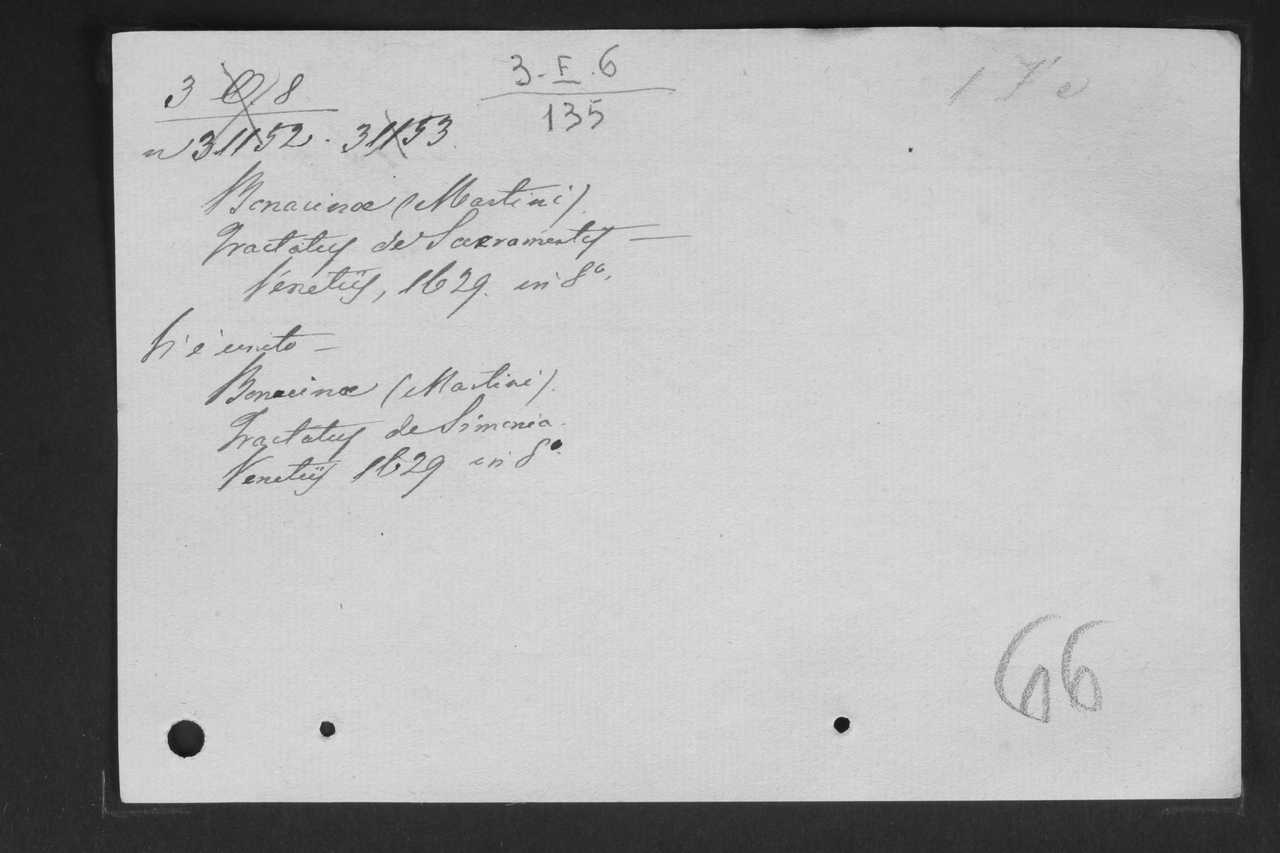 3 O 8
3-F.6
135
n 31152. 31153.
Bonacinæ (Martini).
Tractatus de Sacramentis —
Venetiis, 1629. in 8°.
Vi è unito —
Bonacinæ (Martini).
Tractatus de Simonia.
Venetiis 1629 in 8°.
66